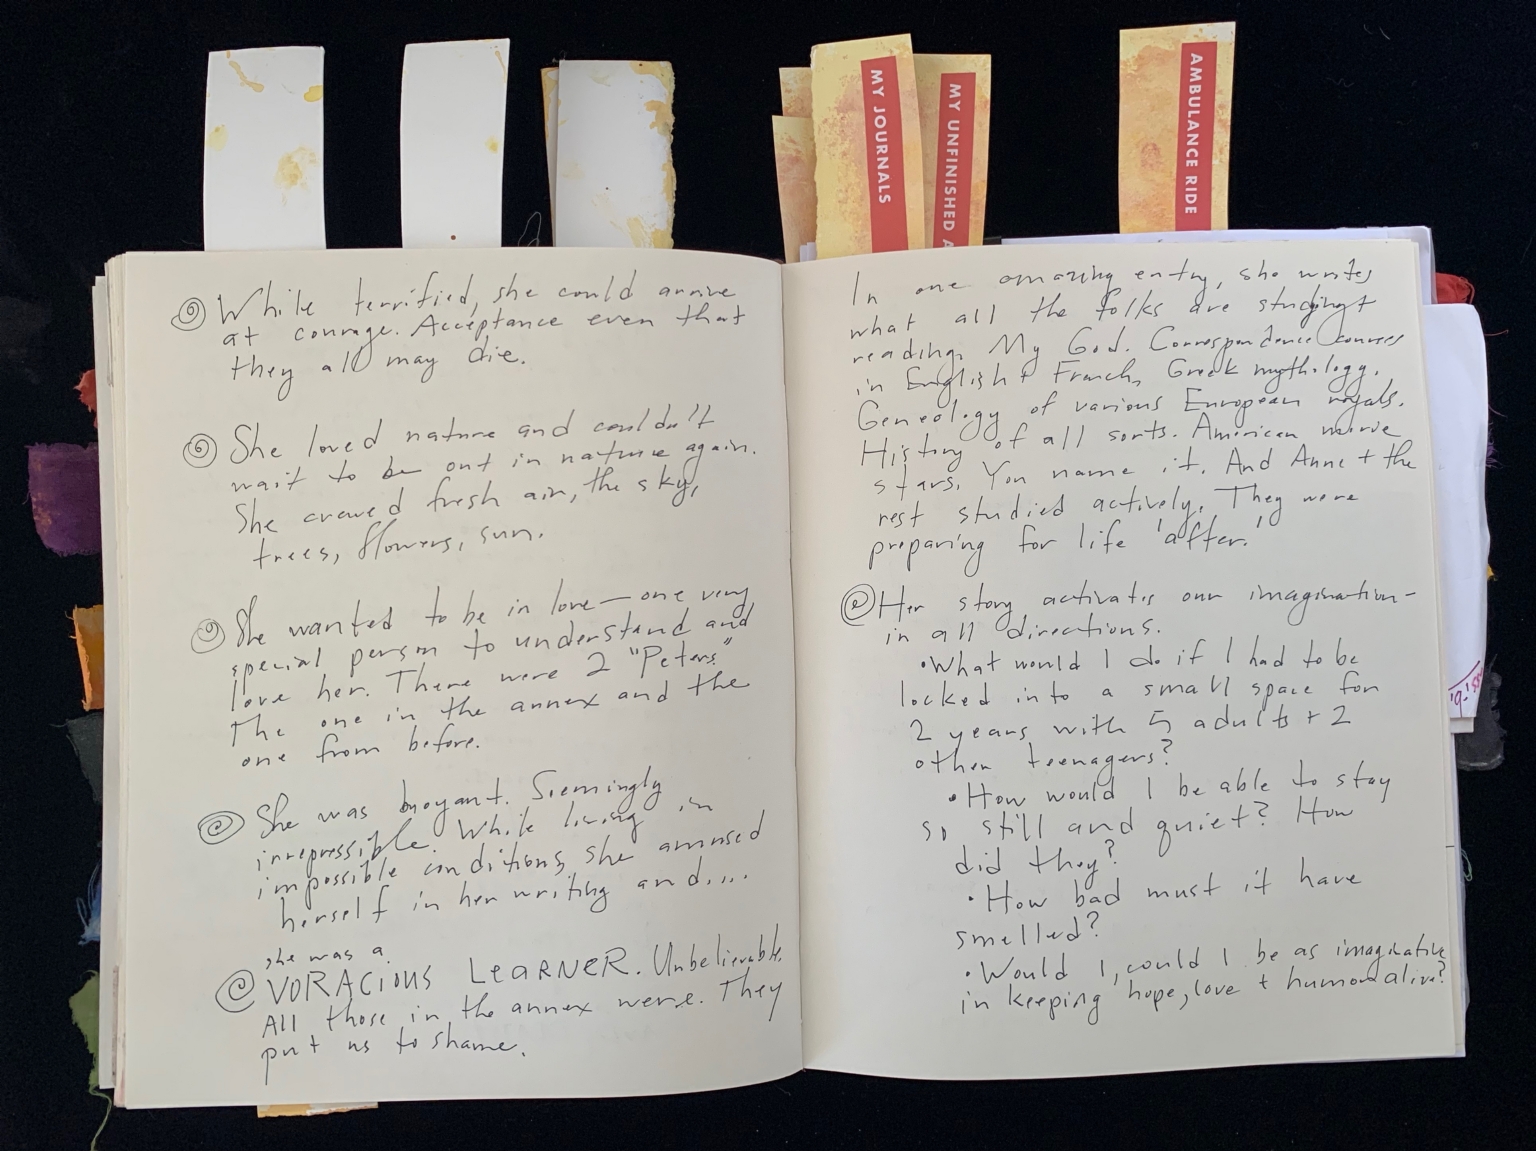 MY JOURNALS
MY UNFINISHED A
AMBULANCE RIDE
While terrified, she could arrive
at courage. Acceptance even that
they all may die.
She loved nature and couldn't
wait to be out in nature again.
She craved fresh air, the sky,
trees, flowers, sun.
She wanted to be in love — one very
special person to understand and
love her. There were 2 "Peters."
The one in the annex and the
one from before.
She was buoyant. Seemingly
irrepressible. While living in
impossible conditions, she amused
herself in her writing and....
she was a
VORACIOUS LEARNER. Unbelievable.
All those in the annex were. They
put us to shame.
In one amazing entry, she writes
what all the folks are studying +
reading. My God. Correspondence courses
in English + French, Greek mythology.
Geneology of various European royals.
History of all sorts. American movie
stars. You name it. And Anne + the
rest studied actively. They were
preparing for life 'after.'
Her story activates our imagination-
in all directions.
• What would I do if I had to be
locked into a small space for
2 years with 5 adults + 2
other teenagers?
• How would I be able to stay
so still and quiet? How
did they?
• How bad must it have
smelled?
• Would I, could I be as imaginative
in keeping hope, love + humor alive?